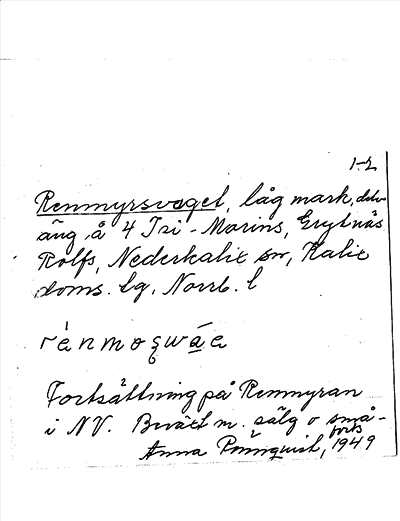 1-2
Renmyrsvaget, låg mark, delv
äng, å 4 Isi - Marins, Grytnäs
Rolfs, Nederkalix sn, Kalix
doms. lg, Norrb. l
Fortsättning på Renmyran
i NV. Beväxt m. sälg o små-
forts
Anna Pönnquist, 1949